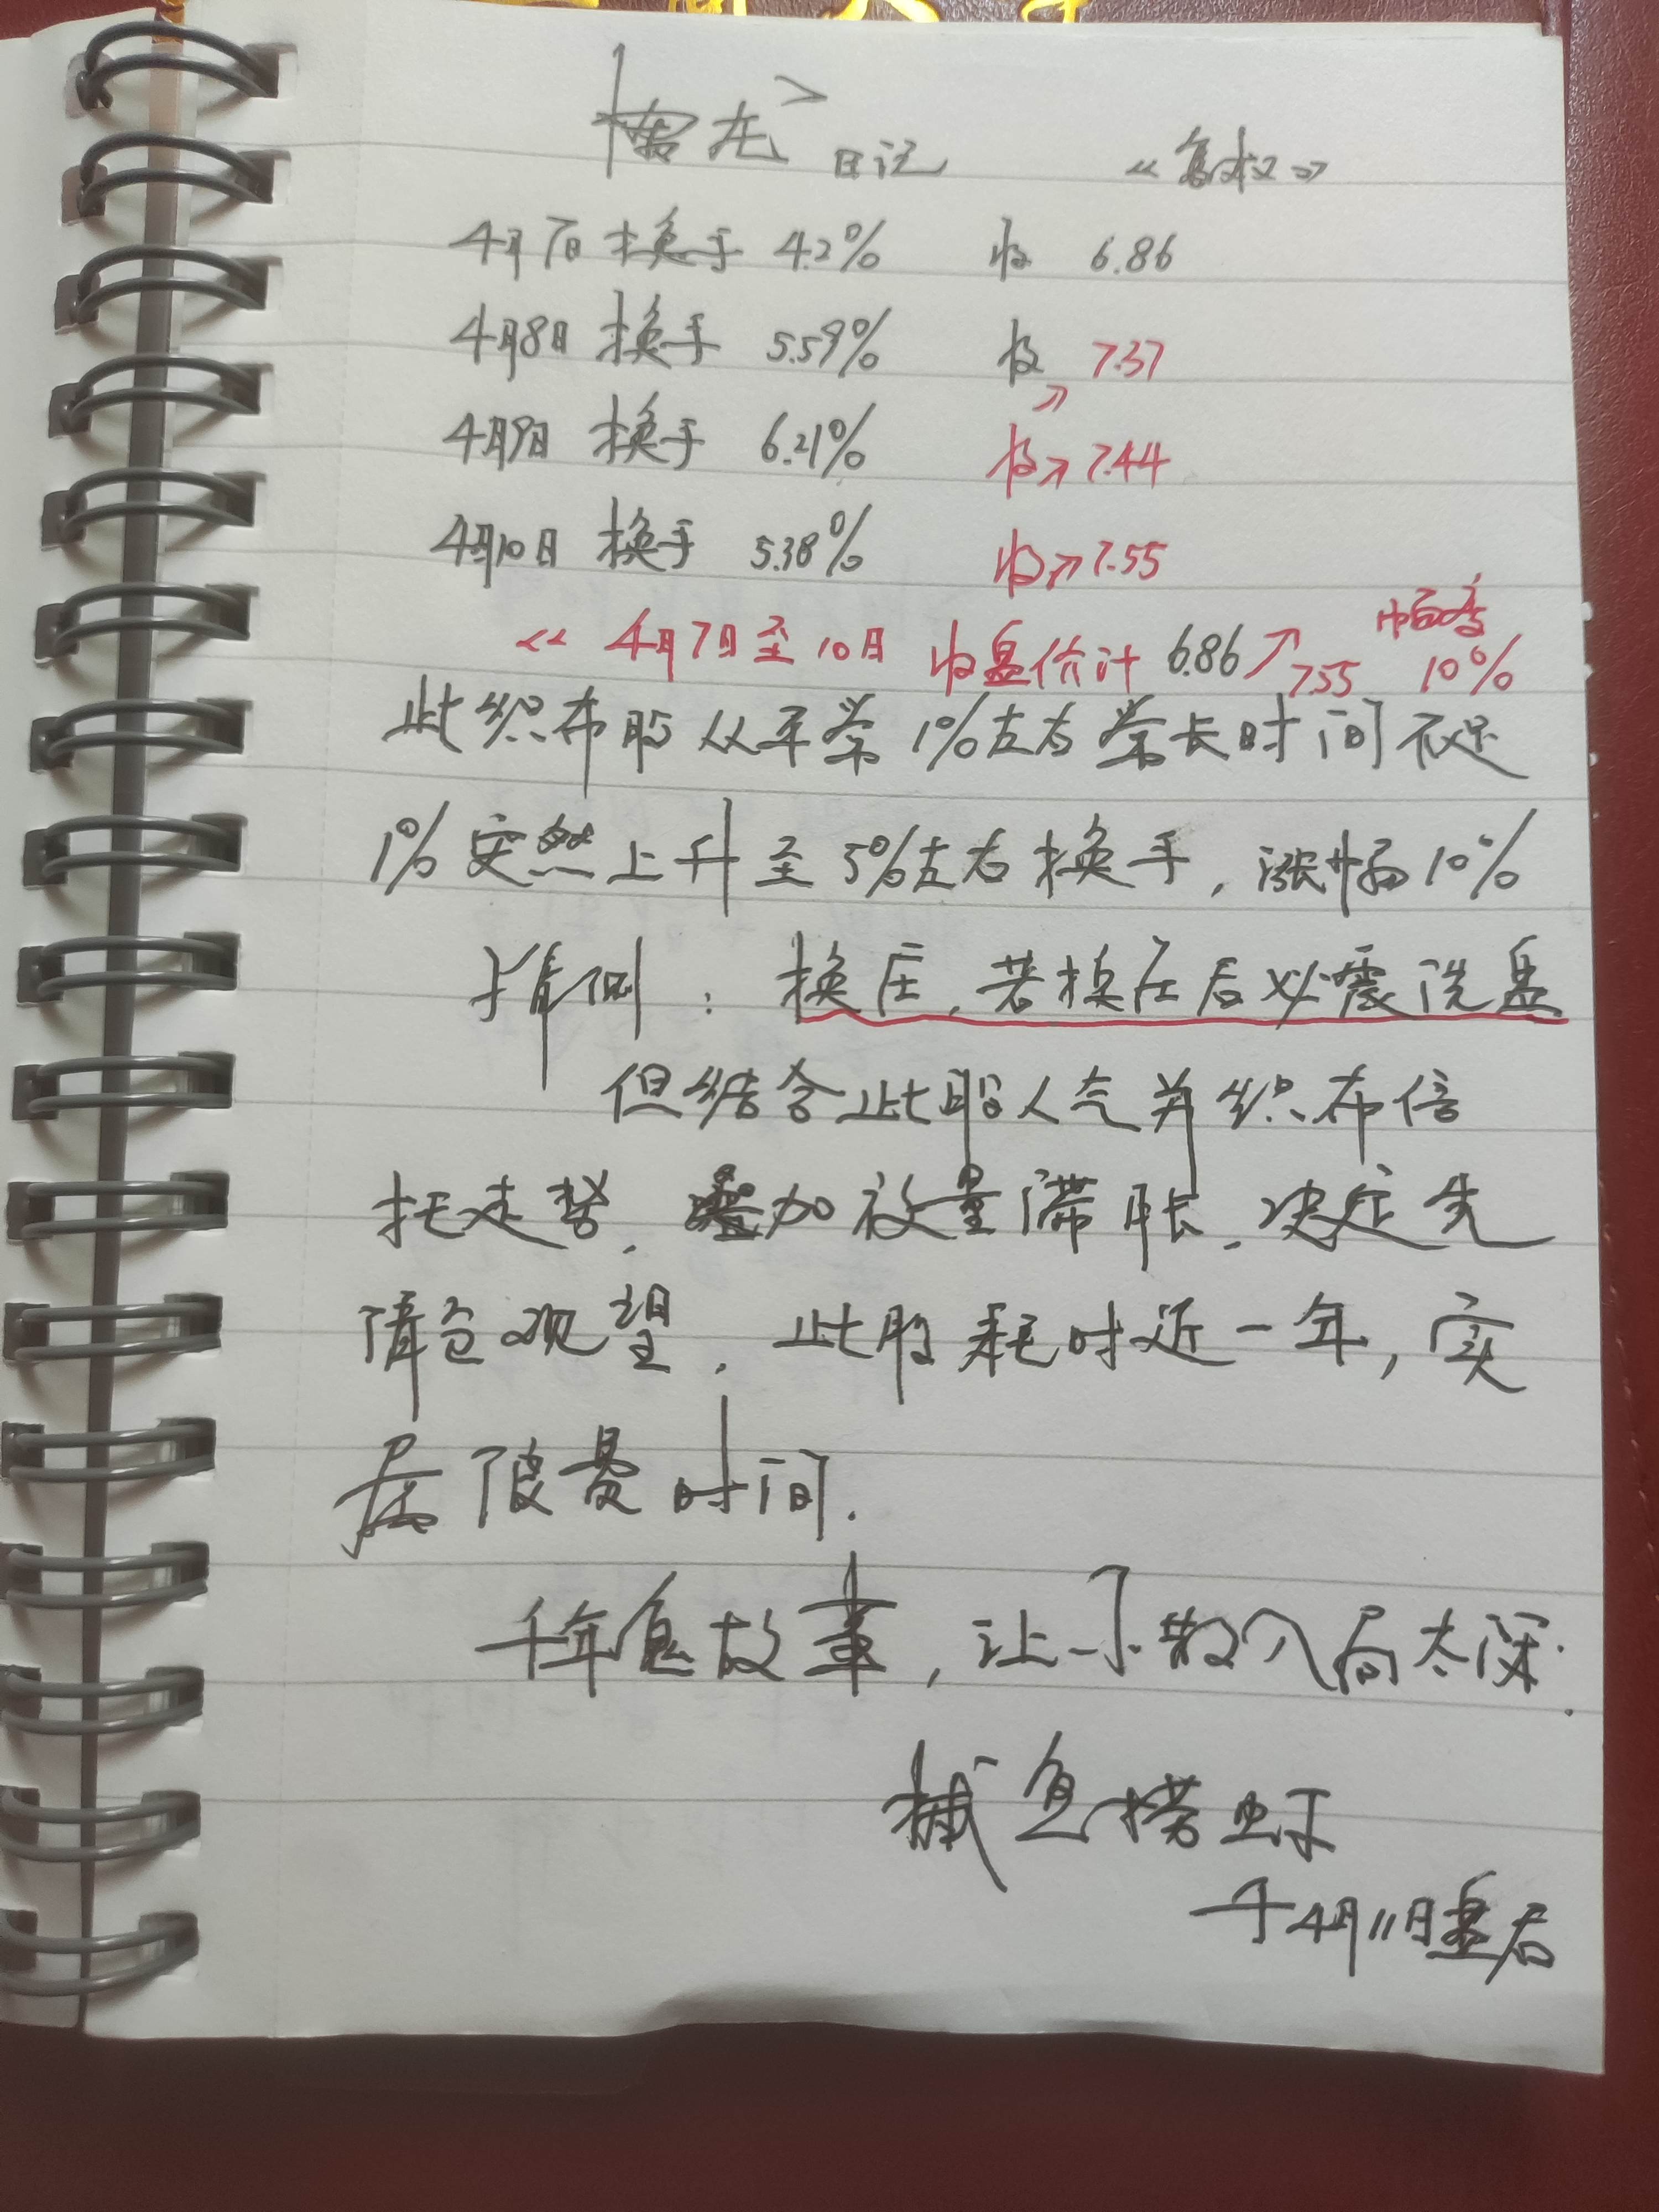 擒龙 日记 《复权》
4月7日 换手 4.2% 收 6.86
4月8日 换手 5.59% 收 7.37
4月9日 换手 6.21% 收↗ 7.44
4月10日 换手 5.38% 收↗ 7.55
《 4月7日至10日 收盘价计 6.86↗7.55 幅度 10%
此织布股从平常1%左右常长时间不足
1%突然上升至5%左右换手,涨幅10%
猜测:换庄,若换庄后必震洗盘
但结合此股人气并织布信
托走势,叠加放量滞胀,决定先
清仓观望,此股耗时近一年,实
属浪费时间.
千年鱼故事,让小散入局太深.
摸鱼捞虾
于4月11日盘后